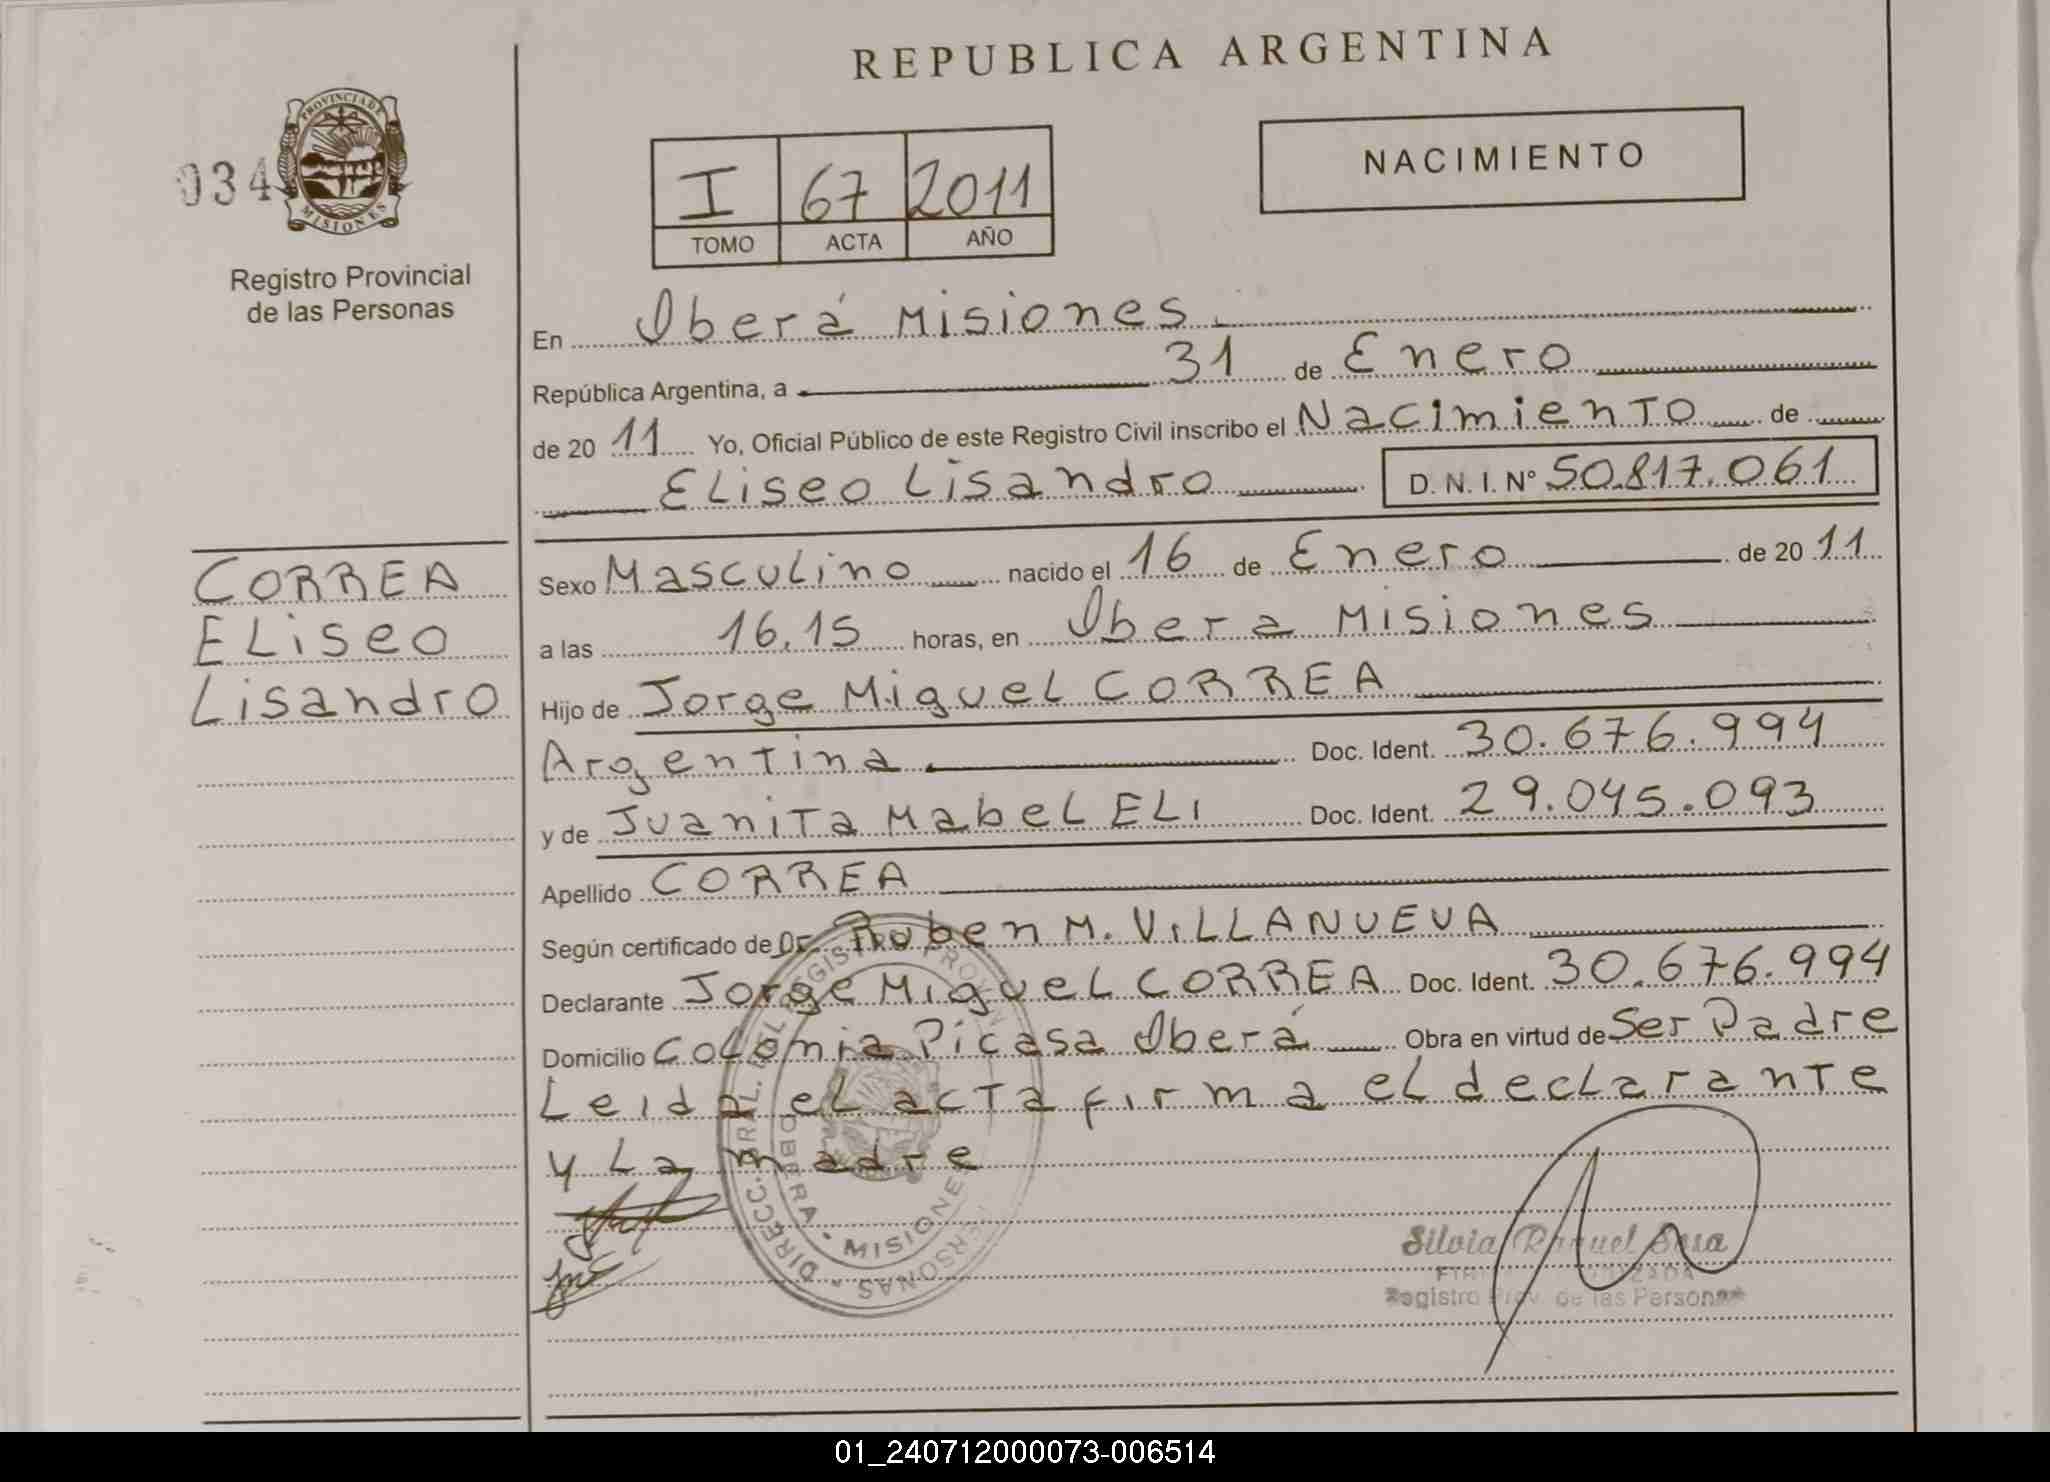 REPUBLICA ARGENTINA
034
PROVINCIA DE MISIONES
Registro Provincial
de las Personas
I 67 2011
TOMO ACTA AÑO
NACIMIENTO
En Oberá Misiones
República Argentina, a 31 de Enero
de 2011 Yo, Oficial Público de este Registro Civil inscribo el Nacimiento de
Eliseo Lisandro D. N. I. Nº 50.817.061
CORREA
Eliseo
Lisandro
Sexo Masculino nacido el 16 de Enero de 2011
a las 16.15 horas, en Obera Misiones
Hijo de Jorge Miguel CORREA
Argentina Doc. Ident. 30.676.994
y de Juanita Mabel ELI Doc. Ident. 29.045.093
Apellido CORREA
Según certificado de Dr. Ruben M. VILLANUEVA
Declarante Jorge Miguel CORREA Doc. Ident. 30.676.994
Domicilio Colonia Picasa Oberá Obra en virtud de Ser Padre
Leida el acta firma el declarante
y La madre
OBERA - MISIONES
Silvia Raquel Sosa
Registro Prov. de las Personas
01_240712000073-006514